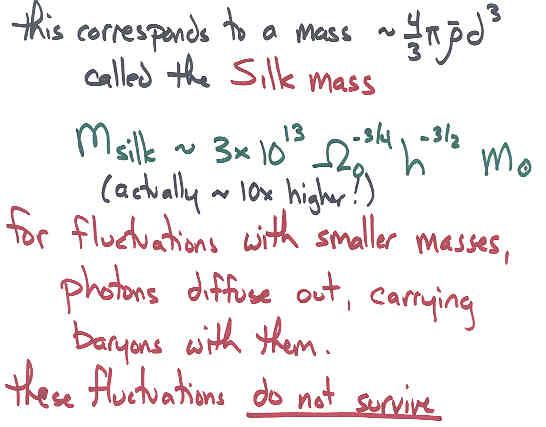 this corresponds to a mass ~ 4/3 π ρ̄ d³
called the Silk mass
M_silk ~ 3 x 10¹³ Ω₀^-3/4 h^-3/2 M⊙
(actually ~ 10x higher!)
for fluctuations with smaller masses,
photons diffuse out, carrying
baryons with them.
these fluctuations do not survive